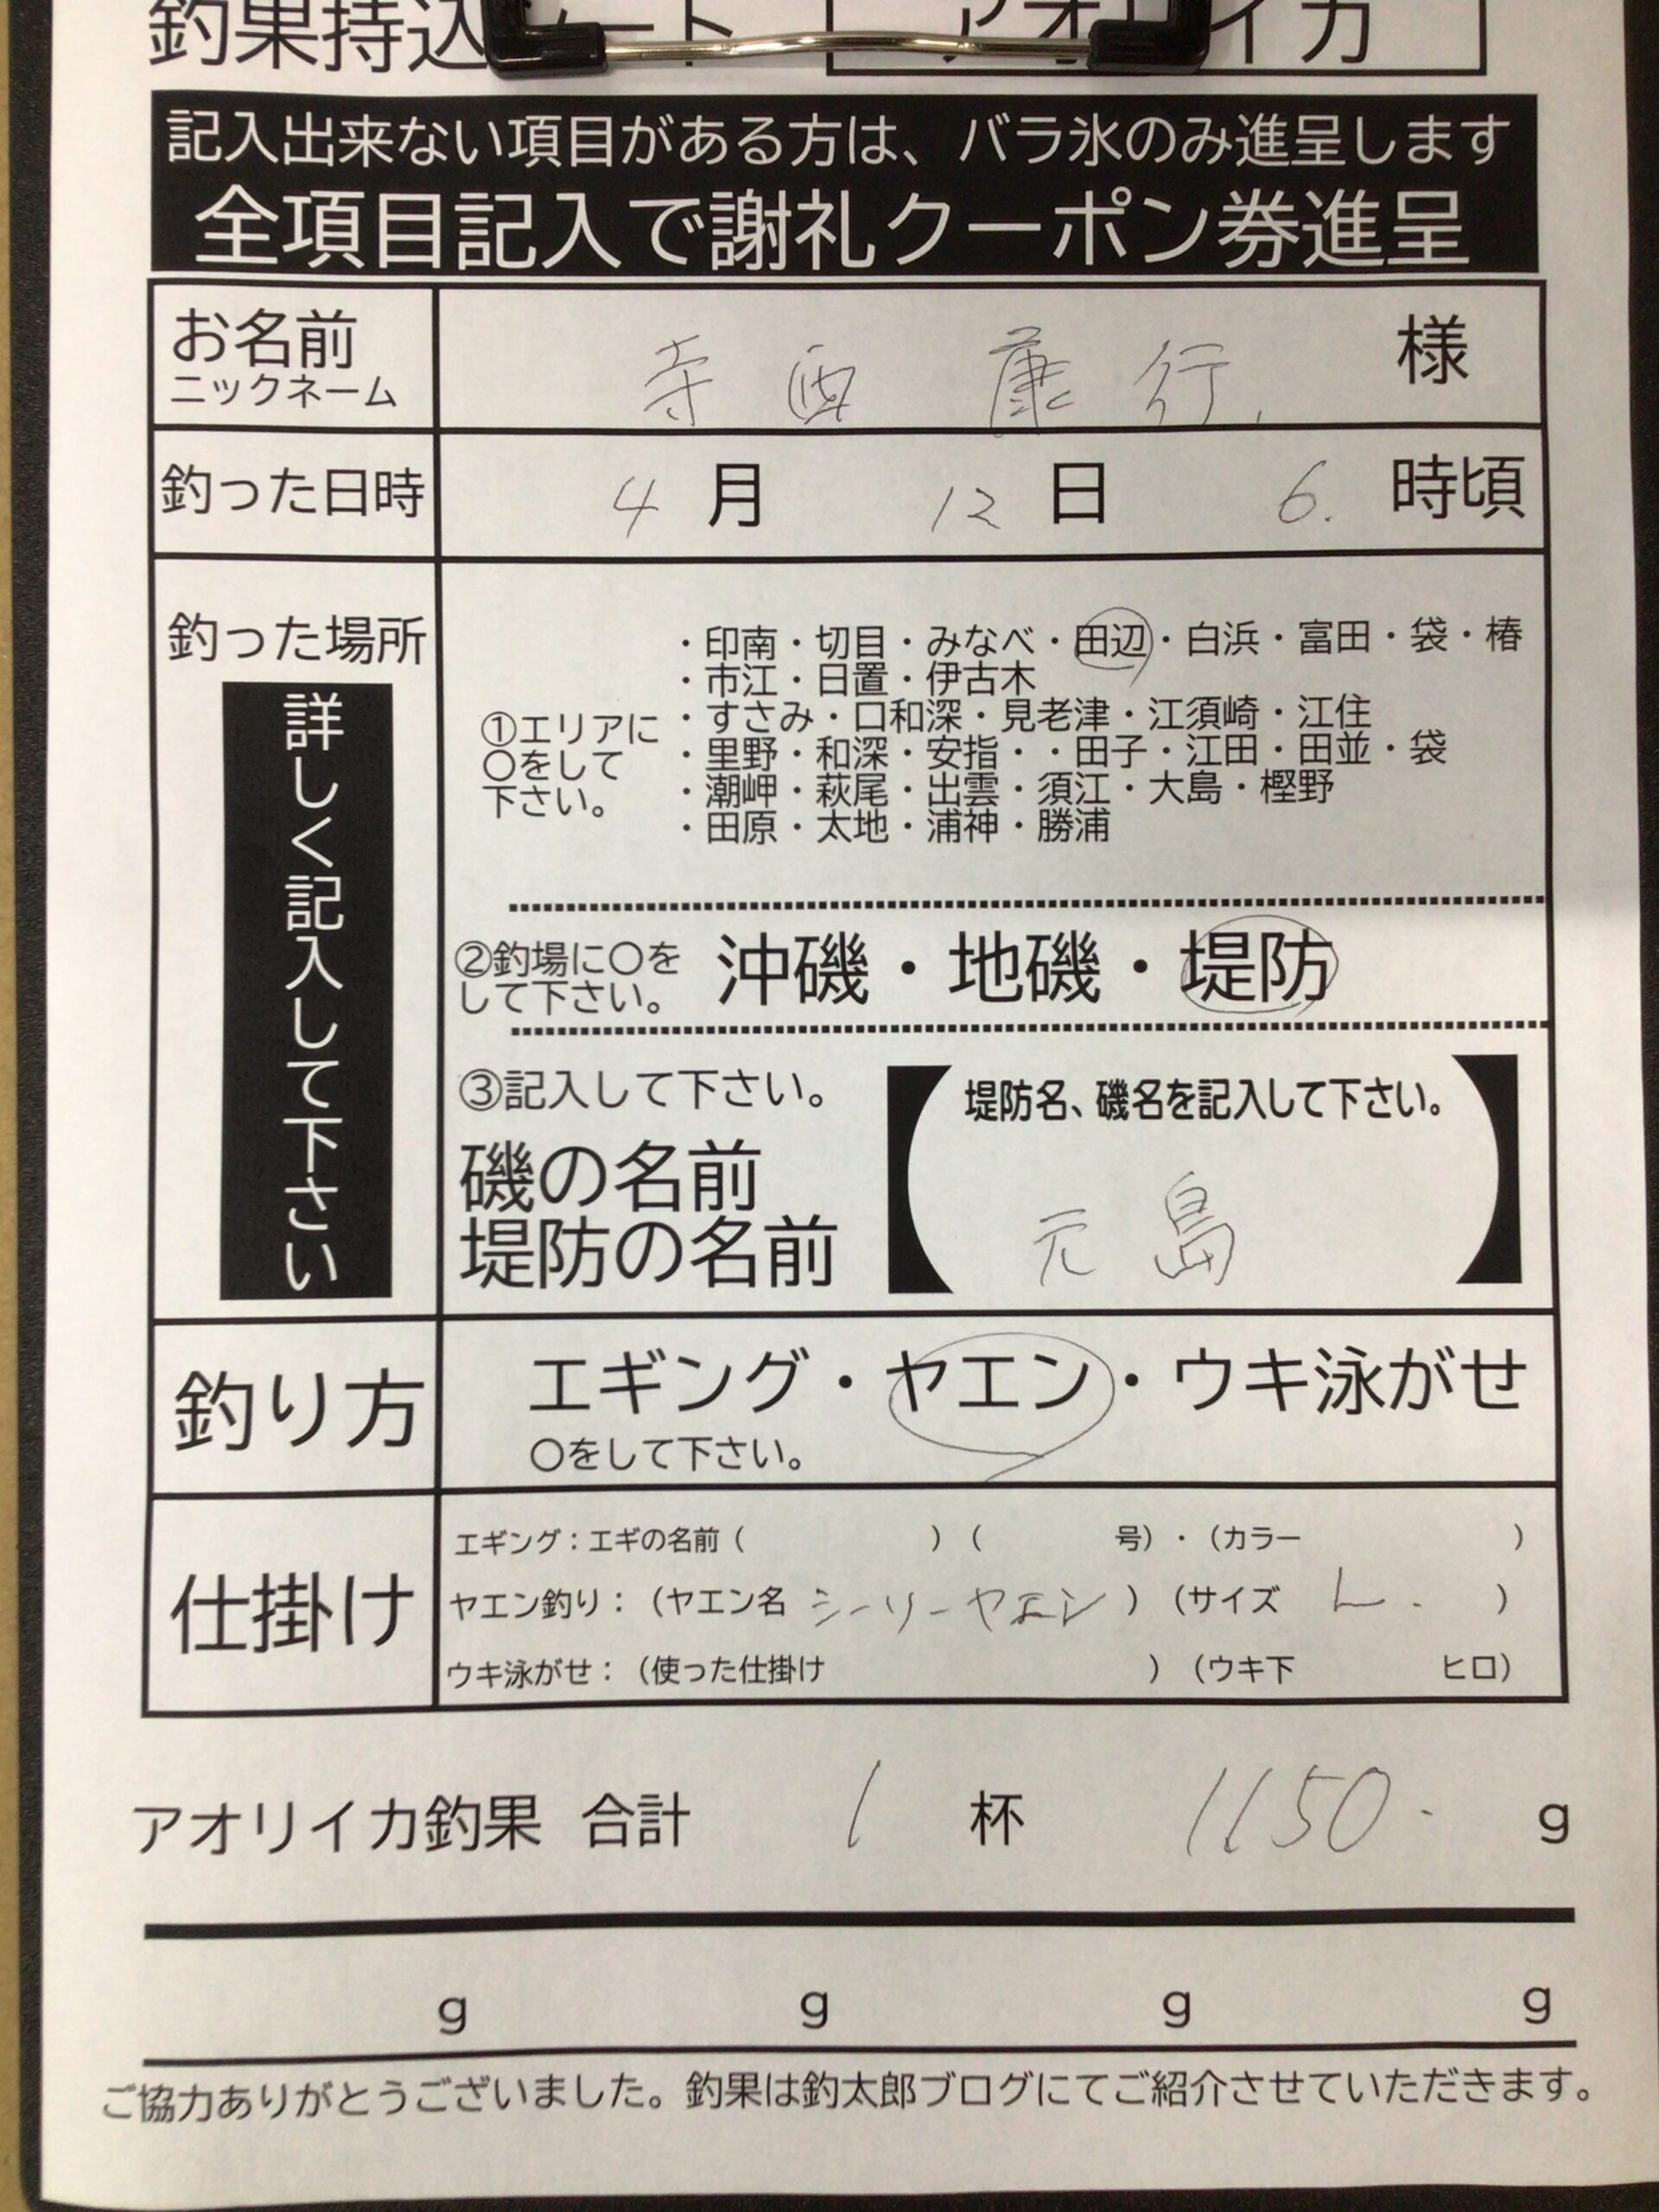 釣果持込シート アオリイカ
記入出来ない項目がある方は、バラ氷のみ進呈します
全項目記入で謝礼クーポン券進呈
お名前 寺西 康行 様
ニックネーム
釣った日時 4月 12日 6.時頃
釣った場所
詳しく記入して下さい
①エリアに
〇をして
下さい。
・印南・切目・みなべ・田辺・白浜・富田・袋・椿
・市江・日置・伊古木
・すさみ・口和深・見老津・江須崎・江住
・里野・和深・安指・・田子・江田・田並・袋
・潮岬・萩尾・出雲・須江・大島・樫野
・田原・太地・浦神・勝浦
②釣場に〇を
して下さい。
沖磯・地磯・堤防
③記入して下さい。
磯の名前
堤防の名前
堤防名、磯名を記入して下さい。
元島
釣り方 エギング・ヤエン・ウキ泳がせ
〇をして下さい。
仕掛け
エギング：エギの名前（ ）（ 号）・（カラー ）
ヤエン釣り：（ヤエン名 シーリーヤエン）（サイズ L. ）
ウキ泳がせ：（使った仕掛け ）（ウキ下 ヒロ）
アオリイカ釣果 合計 1 杯 1150. g
g g g g
ご協力ありがとうございました。釣果は釣太郎ブログにてご紹介させていただきます。